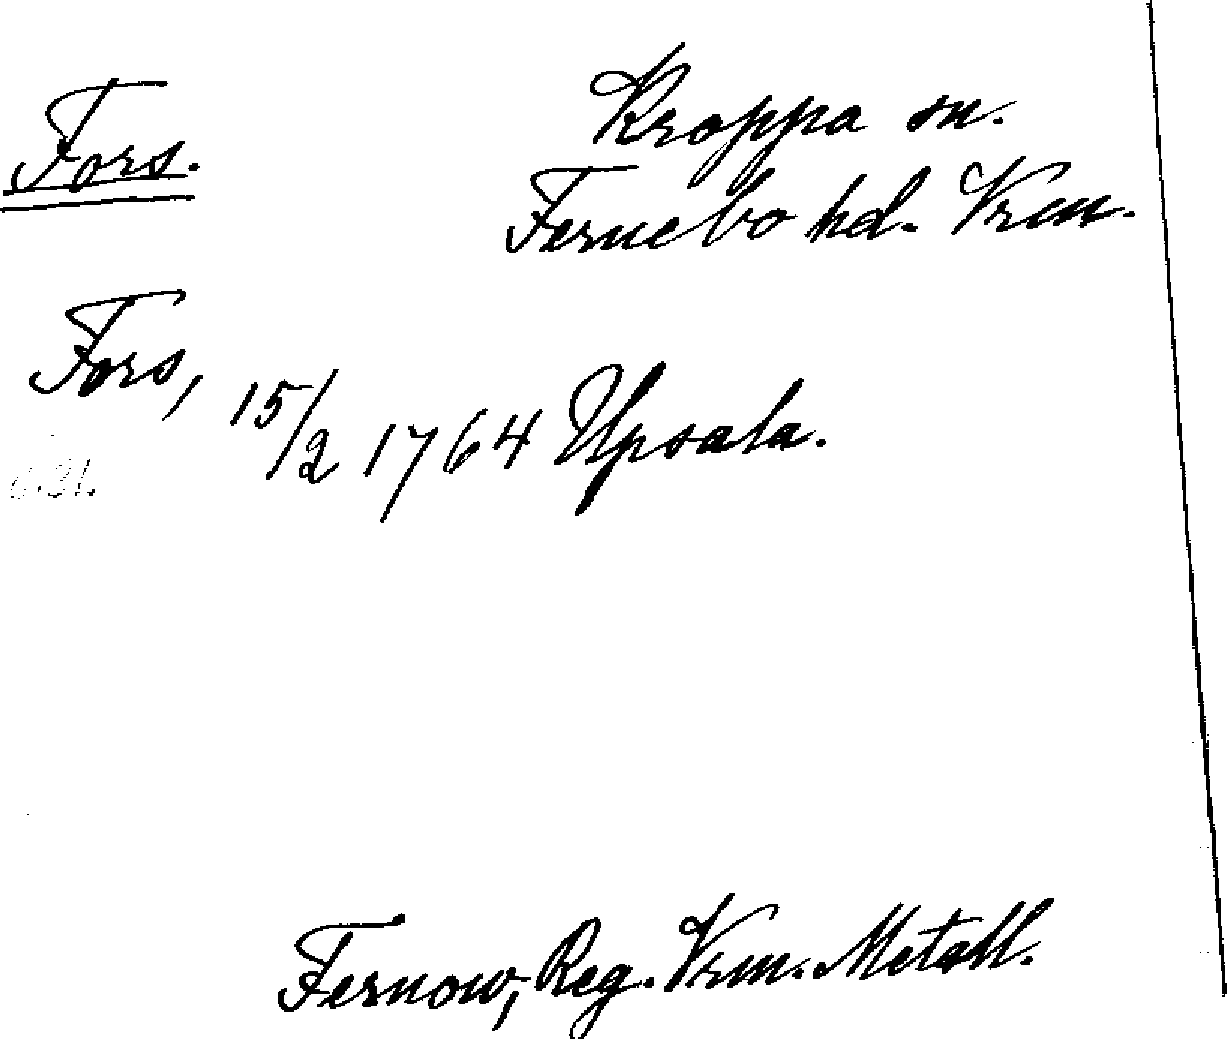 Fors.
Kroppa sn.
Fernebo hd. Vrm.
Fors, 15/2 1764 Upsala.
Fernow, Reg. Vrm. Metall.